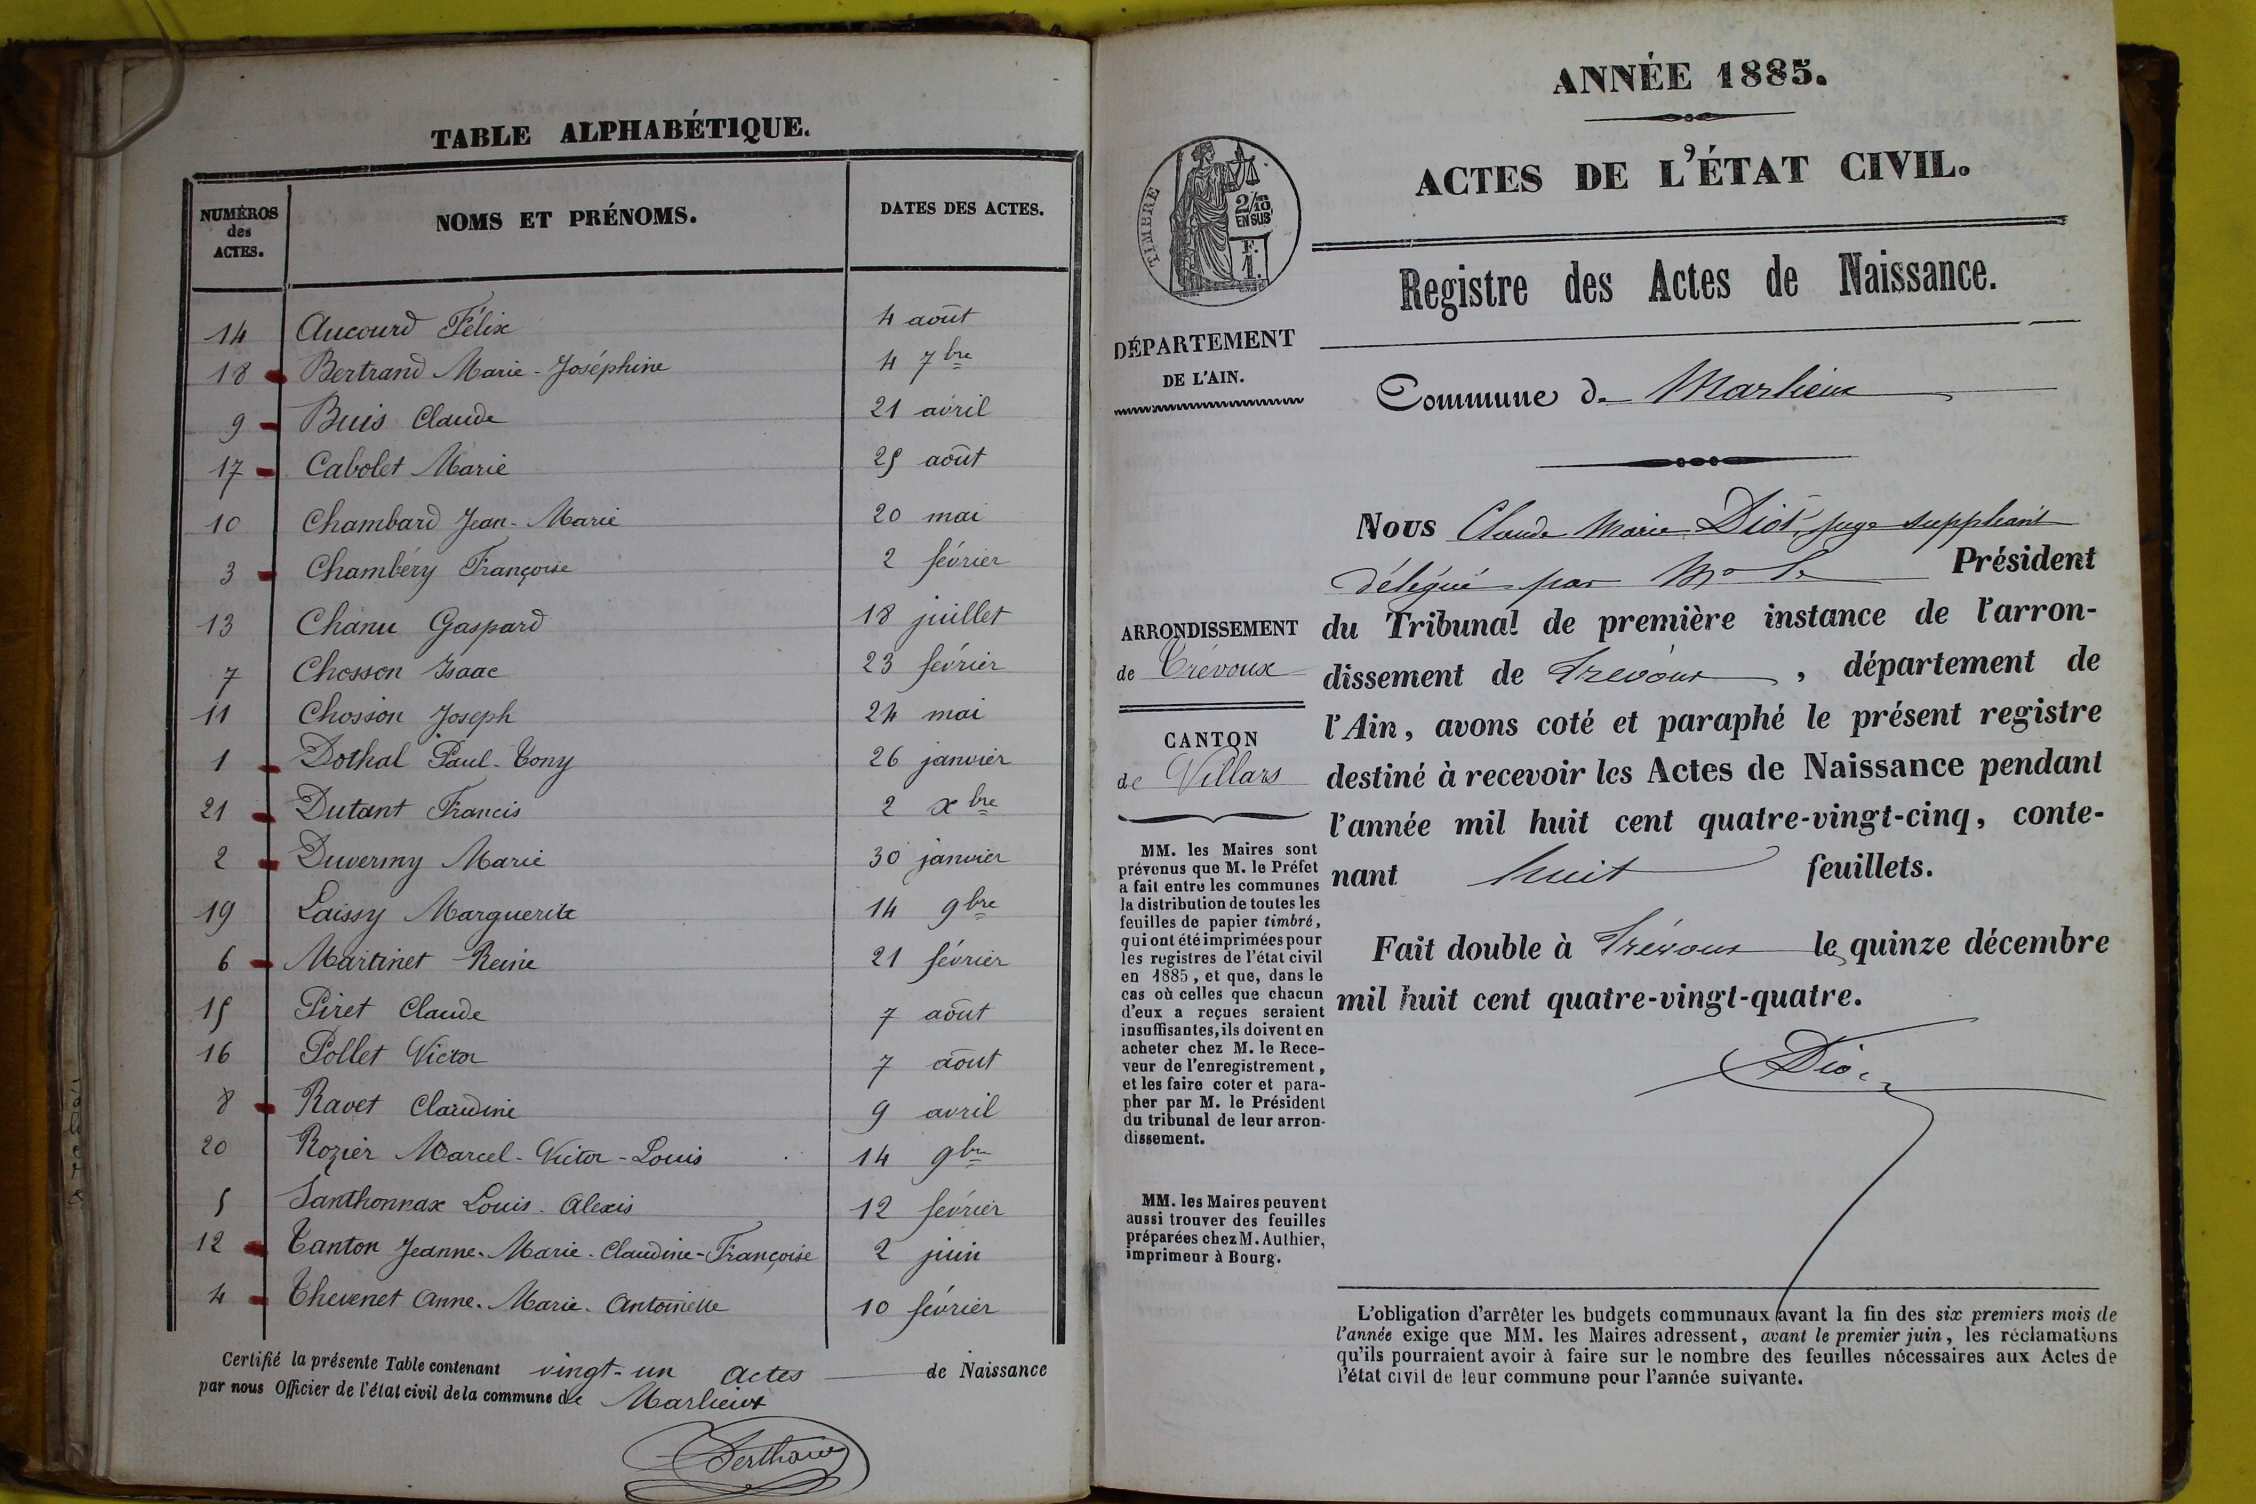 TABLE ALPHABÉTIQUE.
NUMÉROS des ACTES. NOMS ET PRÉNOMS. DATES DES ACTES.
14 Aucourd Félix 4 août
18 Bertrand Marie-Joséphine 4 7bre
9 Buis Claude 21 avril
17 Cabolet Marie 25 août
10 Chambard Jean-Marie 20 mai
3 Chambéry Françoise 2 février
13 Chanu Gaspard 18 juillet
7 Chosson Isaac 23 février
11 Chosson Joseph 24 mai
1 Dothal Paul-Tony 26 janvier
21 Dutant Francis 2 xbre
2 Duvermy Marie 30 janvier
19 Laissy Marguerite 14 9bre
6 Martinet Reine 21 février
15 Piret Claude 7 août
16 Pollet Victor 7 août
8 Ravet Claudine 9 avril
20 Rozier Marcel-Victor-Louis 14 9bre
5 Santhonnax Louis-Alexis 12 février
12 Tanton Jeanne-Marie-Claudine-Françoise 2 juin
4 Thevenet Anne-Marie-Antoinette 10 février
Certifié la présente Table contenant vingt-un actes de Naissance
par nous Officier de l'état civil de la commune de Marlieux
ANNÉE 1885.
ACTES DE L'ÉTAT CIVIL.
TIMBRE
2/10
EN SUS
F.
1.
Registre des Actes de Naissance.
DÉPARTEMENT
DE L'AIN.
Commune de Marlieux
Nous Claude Marie Diot, juge suppléant
délégué par Mr le Président
du Tribunal de première instance de l'arron-
dissement de Trévoux, département de
l'Ain, avons coté et paraphé le présent registre
destiné à recevoir les Actes de Naissance pendant
l'année mil huit cent quatre-vingt-cinq, conte-
nant huit feuillets.
Fait double à Trévoux le quinze décembre
mil huit cent quatre-vingt-quatre.
Diot
ARRONDISSEMENT
de Trévoux
CANTON
de Villars
MM. les Maires sont
prévenus que M. le Préfet
a fait entre les communes
la distribution de toutes les
feuilles de papier timbré,
qui ont été imprimées pour
les registres de l'état civil
en 1885, et que, dans le
cas où celles que chacun
d'eux a reçues seraient
insuffisantes, ils doivent en
acheter chez M. le Rece-
veur de l'enregistrement,
et les faire coter et para-
pher par M. le Président
du tribunal de leur arron-
dissement.
MM. les Maires peuvent
aussi trouver des feuilles
préparées chez M. Authier,
imprimeur à Bourg.
L'obligation d'arrêter les budgets communaux avant la fin des six premiers mois de
l'année exige que MM. les Maires adressent, avant le premier juin, les réclamations
qu'ils pourraient avoir à faire sur le nombre des feuilles nécessaires aux Actes de
l'état civil de leur commune pour l'année suivante.